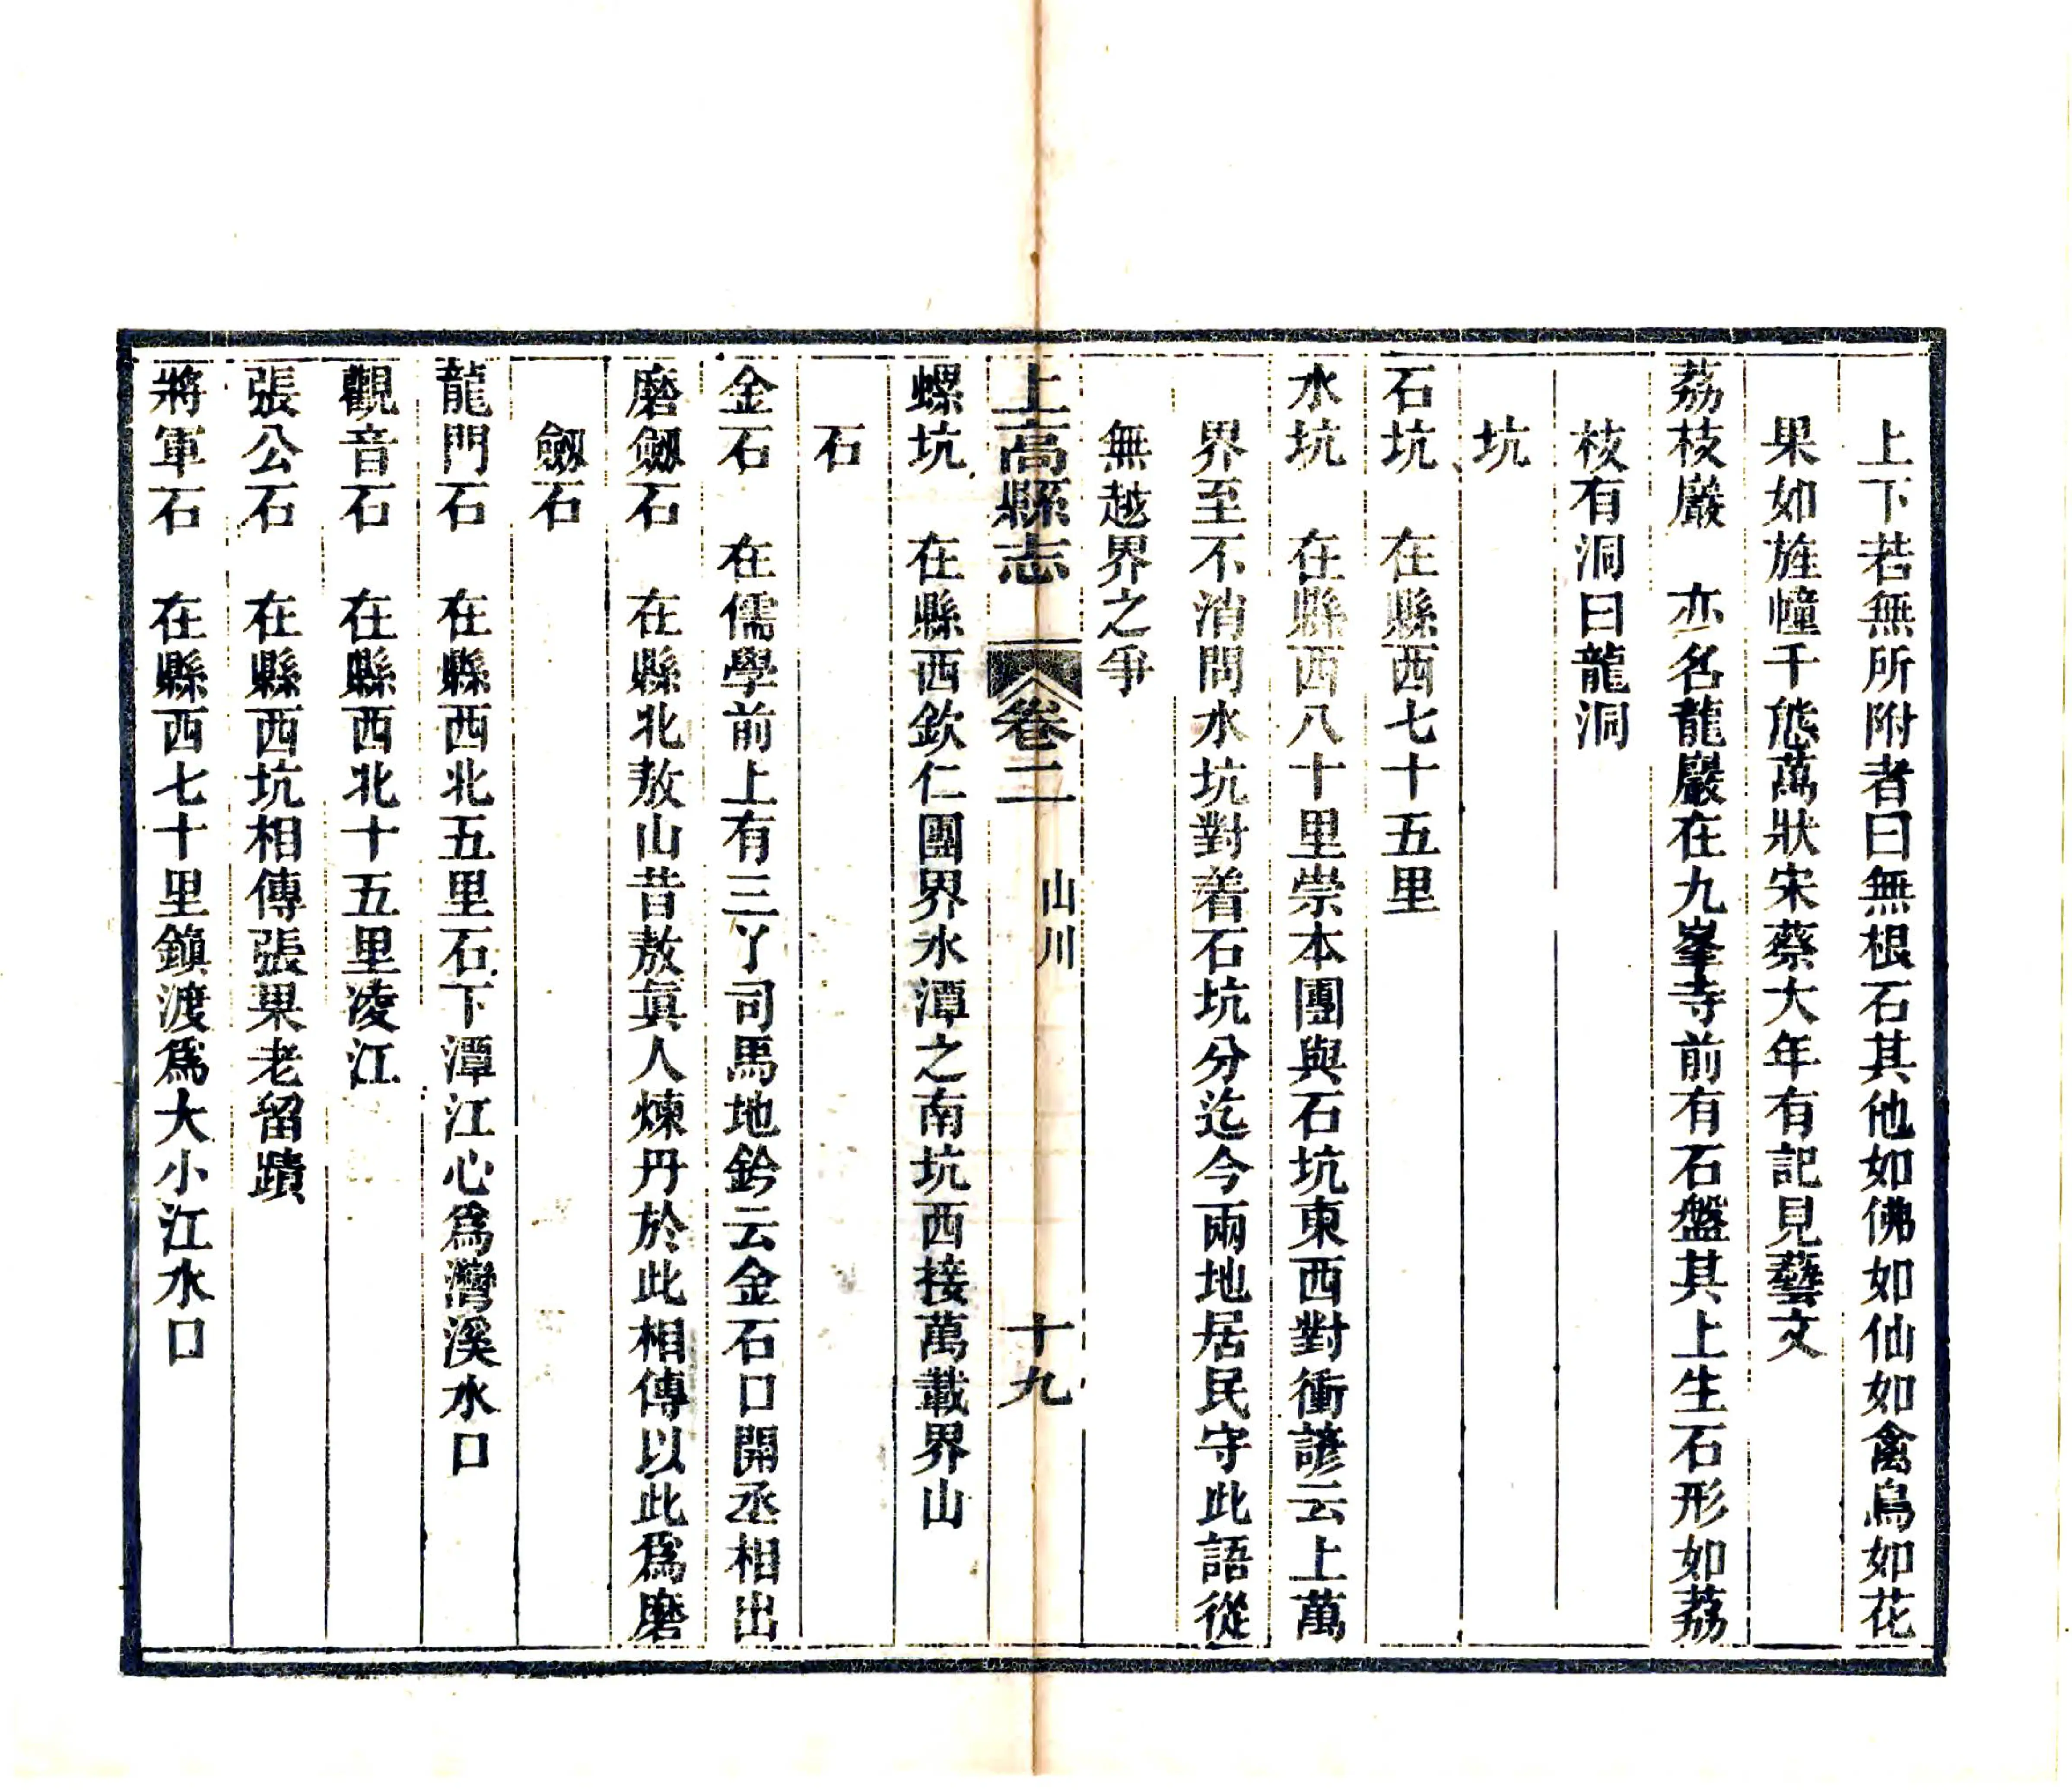 上下若無所附者曰無根石其他如佛如仙如禽鳥如花
果如旌幢千態萬狀宋蔡大年有記見藝文
荔枝巖　亦名龍巖在九峯寺前有石盤其上生石形如荔
枝有洞曰龍洞
坑
石坑　在縣西七十五里
水坑　在縣西八十里崇本團與石坑東西對衝諺云上萬
界至不消問水坑對着石坑分迄今兩地居民守此語從
無越界之爭
上高縣志　卷二　山川　十九
螺坑　在縣西欽仁團界水潭之南坑西接萬載界山
石
金石　在儒學前上有三丫司馬地鈐云金石口開丞相出
磨劔石　在縣北敖山昔敖眞人煉丹於此相傳以此爲磨
劔石
龍門石　在縣西北五里石下潭江心爲灣溪水口
觀音石　在縣西北十五里凌江
張公石　在縣西坑相傳張果老留蹟
將軍石　在縣西七十里鎮渡爲大小江水口